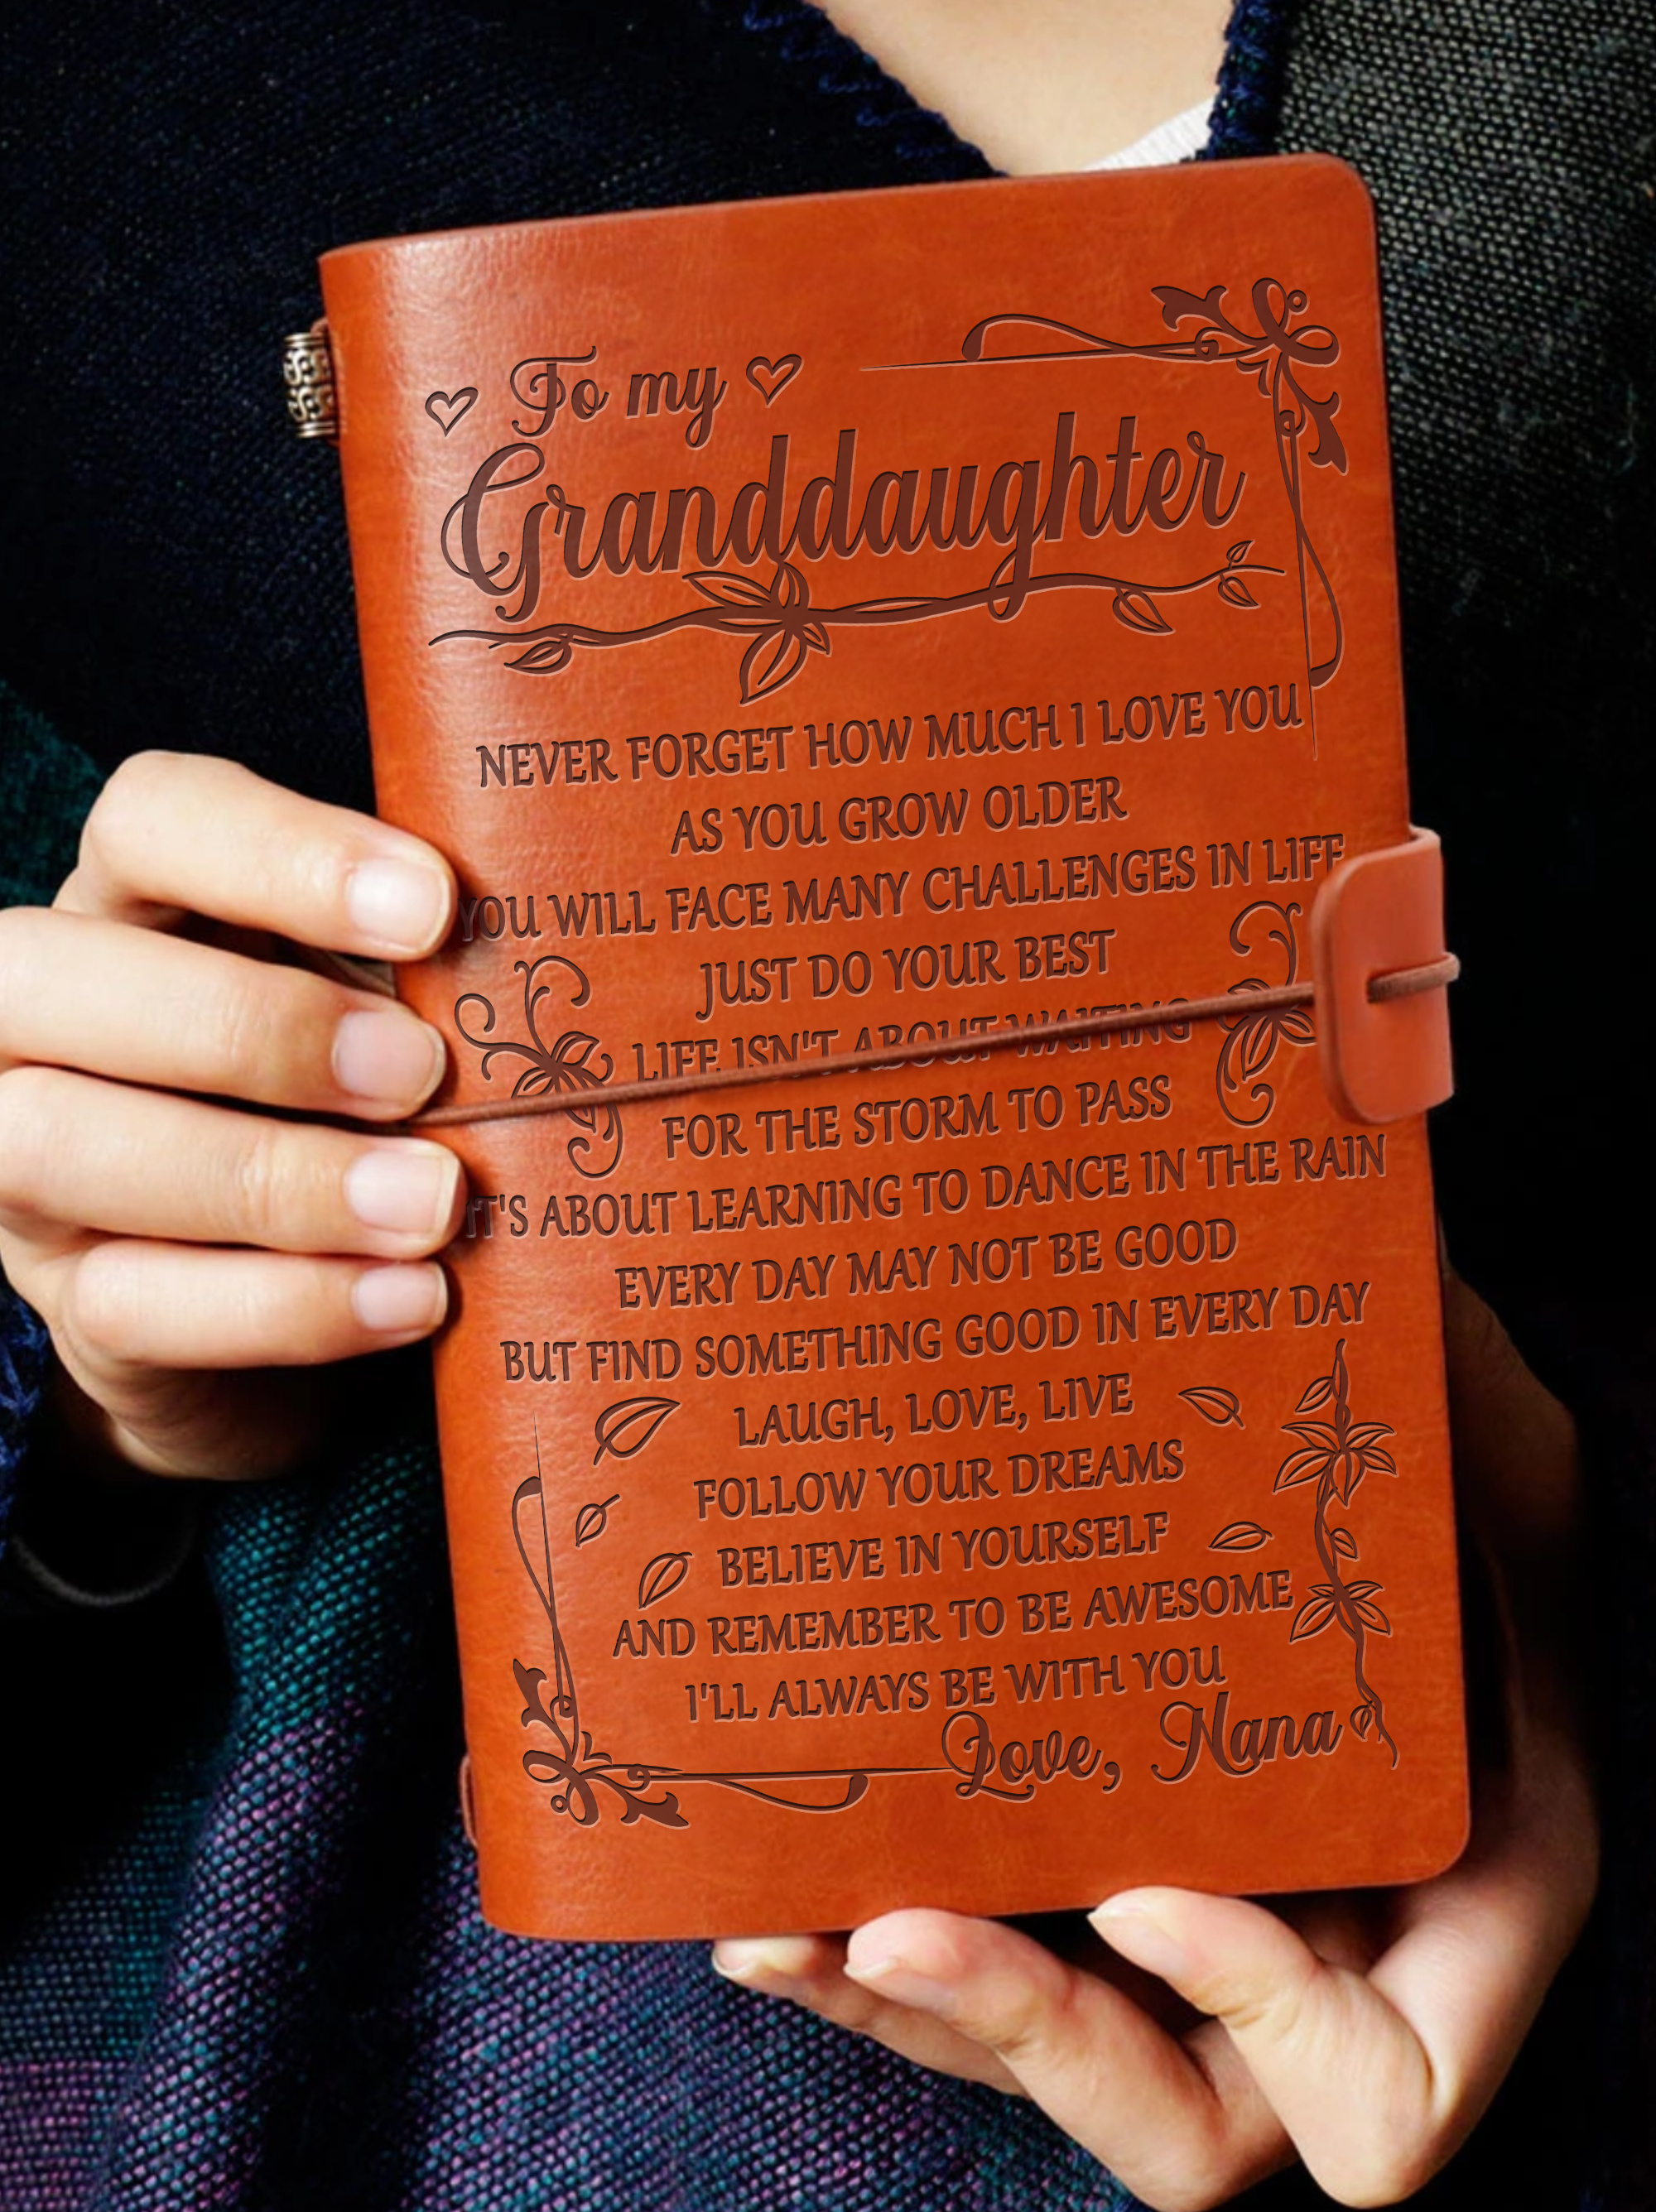 To my
Granddaughter
NEVER FORGET HOW MUCH I LOVE YOU
AS YOU GROW OLDER
YOU WILL FACE MANY CHALLENGES IN LIFE
JUST DO YOUR BEST
LIFE ISN'T ABOUT WAITING
FOR THE STORM TO PASS
IT'S ABOUT LEARNING TO DANCE IN THE RAIN
EVERY DAY MAY NOT BE GOOD
BUT FIND SOMETHING GOOD IN EVERY DAY
LAUGH, LOVE, LIVE
FOLLOW YOUR DREAMS
BELIEVE IN YOURSELF
AND REMEMBER TO BE AWESOME
I'LL ALWAYS BE WITH YOU
Love, Nana